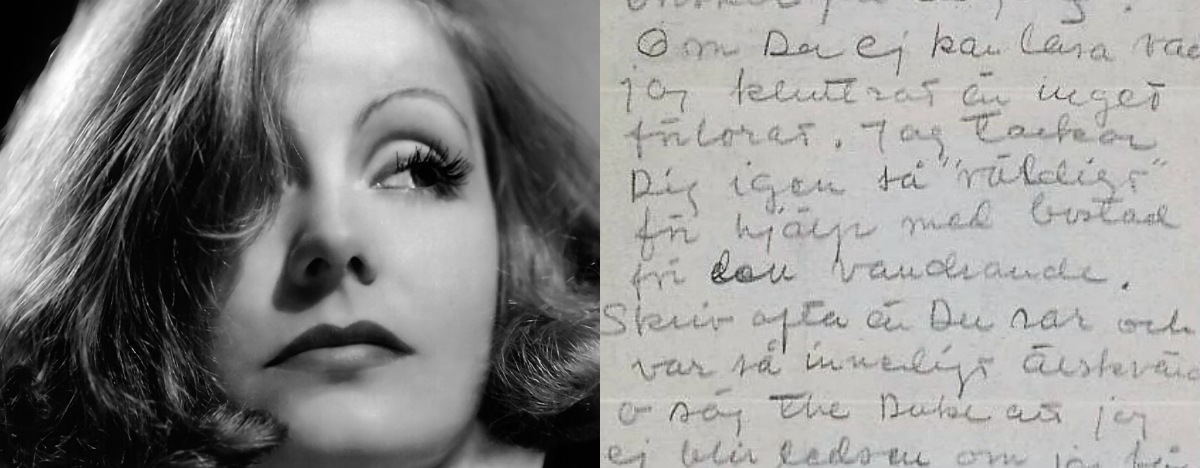 Om Du ej kan läsa vad
jag kluttrat är inget
förlorat. Jag tackar
Dig igen så "väldigt"
för hjälp med bostad
för den vandrande.
Skriv ofta är Du rar och
var så innerligt älskvärd
o säg the Duke att jag
ej blir ledsen om